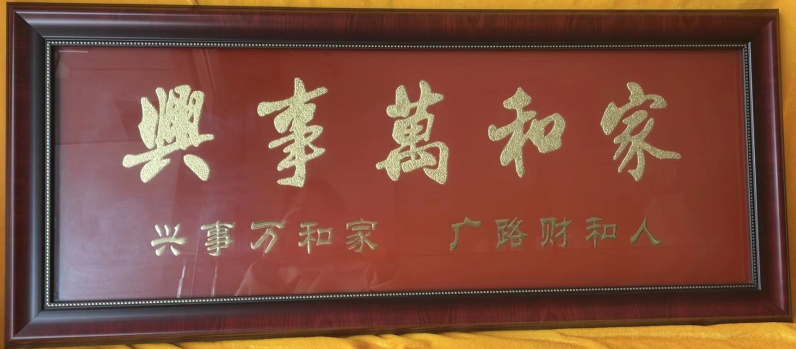 家和萬事興
人和财路广 家和万事兴